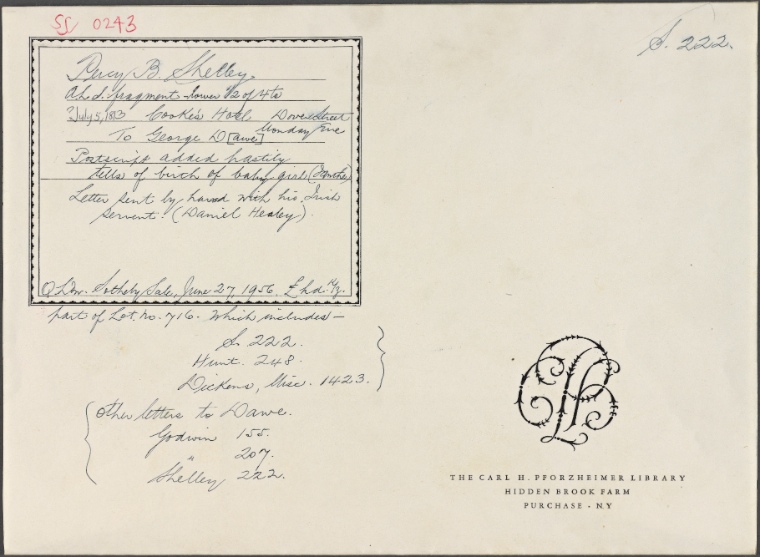 SS 0243
S. 222.
Percy B. Shelley.
A.L.S. fragment - lower 1/2 of 4to
? July 5, 1813 Cooke's Hotel Dover Street
To George D[awe] Monday Eve
Postscript added hastily
tells of birth of baby girl (Ianthe)
Letter sent by hand with his Irish
servant. (Daniel Healey).
Sotheby Sale, June 27, 1956.
part of Lot. No. 716. Which includes —
S. 222.
Hunt. 248.
Dickens, Misc. 1423.
Other letters to Dawe.
Godwin 155.
" 207.
Shelley 222.
THE CARL H. PFORZHEIMER LIBRARY
HIDDEN BROOK FARM
PURCHASE - NY